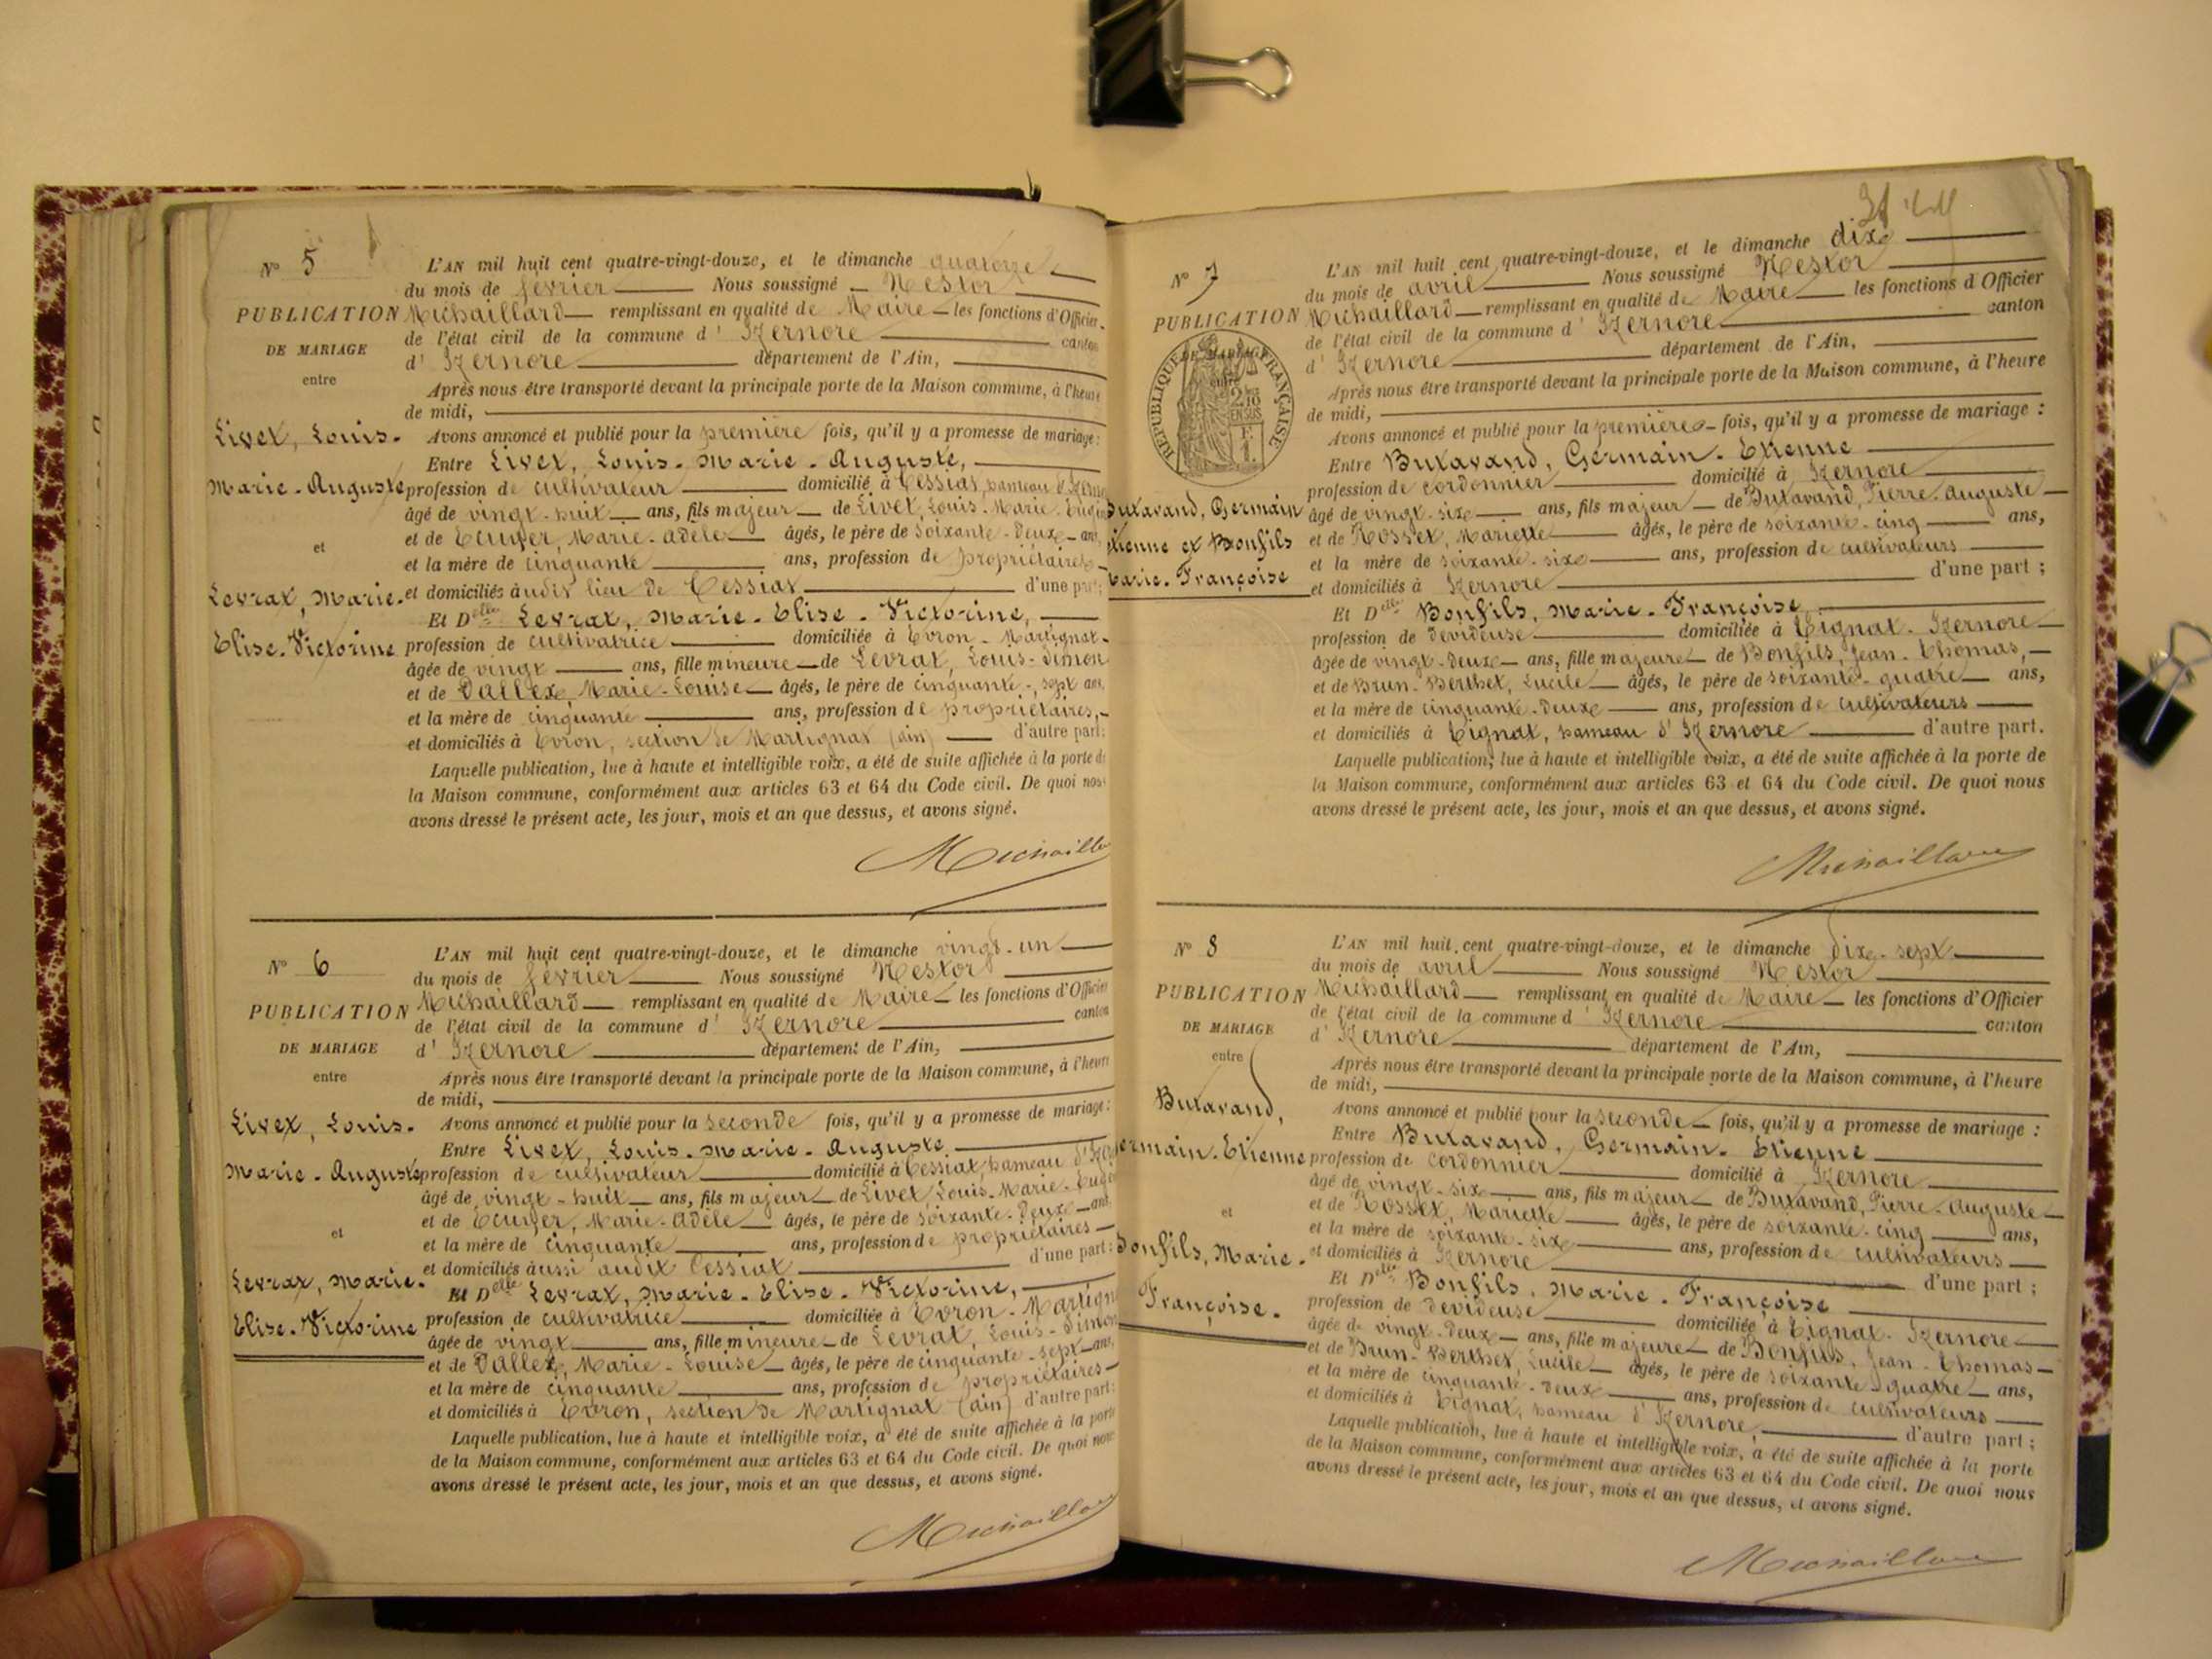 N° 5
PUBLICATION
DE MARIAGE
entre
Livet, Louis-
Marie-Auguste
et
Levrat, Marie-
Elise-Victorine
L'AN mil huit cent quatre-vingt-douze, et le dimanche quatorze
du mois de février Nous soussigné Nestor
Michaillard remplissant en qualité de Maire les fonctions d'Officier
de l'état civil de la commune d' Izernore canton
d' Izernore département de l'Ain,
Après nous être transporté devant la principale porte de la Maison commune, à l'heure
de midi,
Avons annoncé et publié pour la première fois, qu'il y a promesse de mariage :
Entre Livet, Louis-Marie-Auguste,
profession de cultivateur domicilié à Cessiat, hameau d'Izernore
âgé de vingt-huit ans, fils majeur de Livet, Louis-Marie-Eugène
et de Ecuyer, Marie-Adèle âgés, le père de soixante-deux ans,
et la mère de cinquante ans, profession de propriétaires
et domiciliés audit lieu de Cessiat d'une part;
Et Delle Levrat, Marie-Elise-Victorine,
profession de cultivatrice domiciliée à Evron-Martignat-
âgée de vingt ans, fille mineure de Levrat, Louis-Simon
et de Vallet, Marie-Louise âgés, le père de cinquante-sept ans,
et la mère de cinquante ans, profession de propriétaires,
et domiciliés à Evron, section de Martignat (ain) d'autre part:
Laquelle publication, lue à haute et intelligible voix, a été de suite affichée à la porte de
la Maison commune, conformément aux articles 63 et 64 du Code civil. De quoi nous
avons dressé le présent acte, les jour, mois et an que dessus, et avons signé.
Michaillard
N° 6
PUBLICATION
DE MARIAGE
entre
Livet, Louis-
Marie-Auguste
et
Levrat, Marie-
Elise-Victorine
L'AN mil huit cent quatre-vingt-douze, et le dimanche vingt-un
du mois de février Nous soussigné Nestor
Michaillard remplissant en qualité de Maire les fonctions d'Officier
de l'état civil de la commune d' Izernore canton
d' Izernore département de l'Ain,
Après nous être transporté devant la principale porte de la Maison commune, à l'heure
de midi,
Avons annoncé et publié pour la seconde fois, qu'il y a promesse de mariage :
Entre Livet, Louis-Marie-Auguste,
profession de cultivateur domicilié à Cessiat, hameau d'Izernore
âgé de vingt-huit ans, fils majeur de Livet, Louis-Marie-Eugène
et de Ecuyer, Marie-Adèle âgés, le père de soixante-deux ans,
et la mère de cinquante ans, profession de propriétaires
et domiciliés aussi audit Cessiat d'une part;
Et Delle Levrat, Marie-Elise-Victorine,
profession de cultivatrice domiciliée à Evron-Martignat
âgée de vingt ans, fille mineure de Levrat, Louis-Simon
et de Vallet, Marie-Louise âgés, le père de cinquante-sept ans,
et la mère de cinquante ans, profession de propriétaires
et domiciliés à Evron, section de Martignat (ain) d'autre part;
Laquelle publication, lue à haute et intelligible voix, a été de suite affichée à la porte
de la Maison commune, conformément aux articles 63 et 64 du Code civil. De quoi nous
avons dressé le présent acte, les jour, mois et an que dessus, et avons signé.
Michaillard
N° 7
PUBLICATION
DE MARIAGE
entre
RÉPUBLIQUE FRANÇAISE
2/10
EN SUS
Butavand, Germain
Etienne et Bonfils
Marie-Françoise
L'AN mil huit cent quatre-vingt-douze, et le dimanche dix
du mois de avril Nous soussigné Nestor
Michaillard remplissant en qualité de Maire les fonctions d'Officier
de l'état civil de la commune d' Izernore canton
d' Izernore département de l'Ain,
Après nous être transporté devant la principale porte de la Maison commune, à l'heure
de midi,
Avons annoncé et publié pour la première fois, qu'il y a promesse de mariage :
Entre Butavand, Germain-Etienne
profession de cordonnier domicilié à Izernore
âgé de vingt-six ans, fils majeur de Butavand, Pierre-Auguste
et de Rosset, Mariette âgés, le père de soixante-cinq ans,
et la mère de soixante-six ans, profession de cultivateurs
et domiciliés à Izernore d'une part ;
Et Delle Bonfils, Marie-Françoise,
profession de dévideuse domiciliée à Tignat-Izernore
âgée de vingt-deux ans, fille majeure de Bonfils, Jean-Thomas,
et de Brun-Berthet, Lucile âgés, le père de soixante-quatre ans,
et la mère de cinquante-deux ans, profession de cultivateurs
et domiciliés à Tignat, hameau d'Izernore d'autre part.
Laquelle publication, lue à haute et intelligible voix, a été de suite affichée à la porte de
la Maison commune, conformément aux articles 63 et 64 du Code civil. De quoi nous
avons dressé le présent acte, les jour, mois et an que dessus, et avons signé.
Michaillard
N° 8
PUBLICATION
DE MARIAGE
entre
Butavand,
Germain-Etienne
et
Bonfils, Marie-
Françoise.
L'AN mil huit cent quatre-vingt-douze, et le dimanche dix-sept
du mois de avril Nous soussigné Nestor
Michaillard remplissant en qualité de Maire les fonctions d'Officier
de l'état civil de la commune d' Izernore canton
d' Izernore département de l'Ain,
Après nous être transporté devant la principale porte de la Maison commune, à l'heure
de midi,
Avons annoncé et publié pour la seconde fois, qu'il y a promesse de mariage :
Entre Butavand, Germain-Etienne
profession de cordonnier domicilié à Izernore
âgé de vingt-six ans, fils majeur de Butavand, Pierre-Auguste
et de Rosset, Mariette âgés, le père de soixante-cinq ans,
et la mère de soixante-six ans, profession de cultivateurs
et domiciliés à Izernore d'une part ;
Et Delle Bonfils, Marie-Françoise
profession de dévideuse domiciliée à Tignat-Izernore
âgée de vingt-deux ans, fille majeure de Bonfils, Jean-Thomas
et de Brun-Berthet, Lucile âgés, le père de soixante-quatre ans,
et la mère de cinquante-deux ans, profession de cultivateurs
et domiciliés à Tignat, hameau d'Izernore, d'autre part ;
Laquelle publication, lue à haute et intelligible voix, a été de suite affichée à la porte
de la Maison commune, conformément aux articles 63 et 64 du Code civil. De quoi nous
avons dressé le présent acte, les jour, mois et an que dessus, et avons signé.
Michaillard